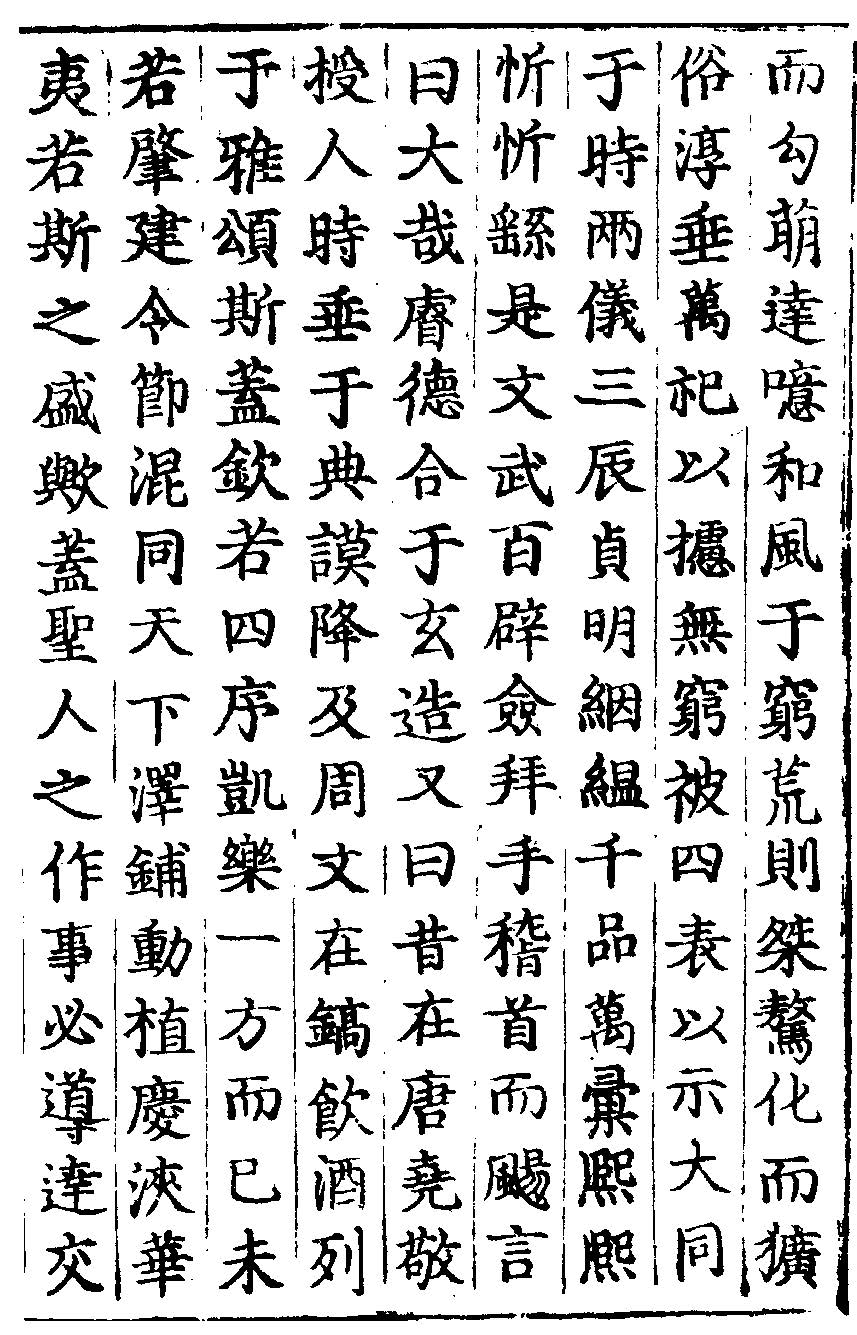 而勾萌達噫和風于窮荒則桀驁化而獷
俗淳垂萬祀以攄無窮被四表以示大同
于時兩儀三辰貞明絪縕千品萬彙熙熙
忻忻繇是文武百辟僉拜手稽首而颺言
曰大哉睿德合于玄造又曰昔在唐堯敬
授人時垂于典謨降及周文在鎬飲酒列
于雅頌斯蓋欽若四序凱樂一方而已未
若肇建令節混同天下澤鋪動植慶浹華
夷若斯之盛歟蓋聖人之作事必導達交